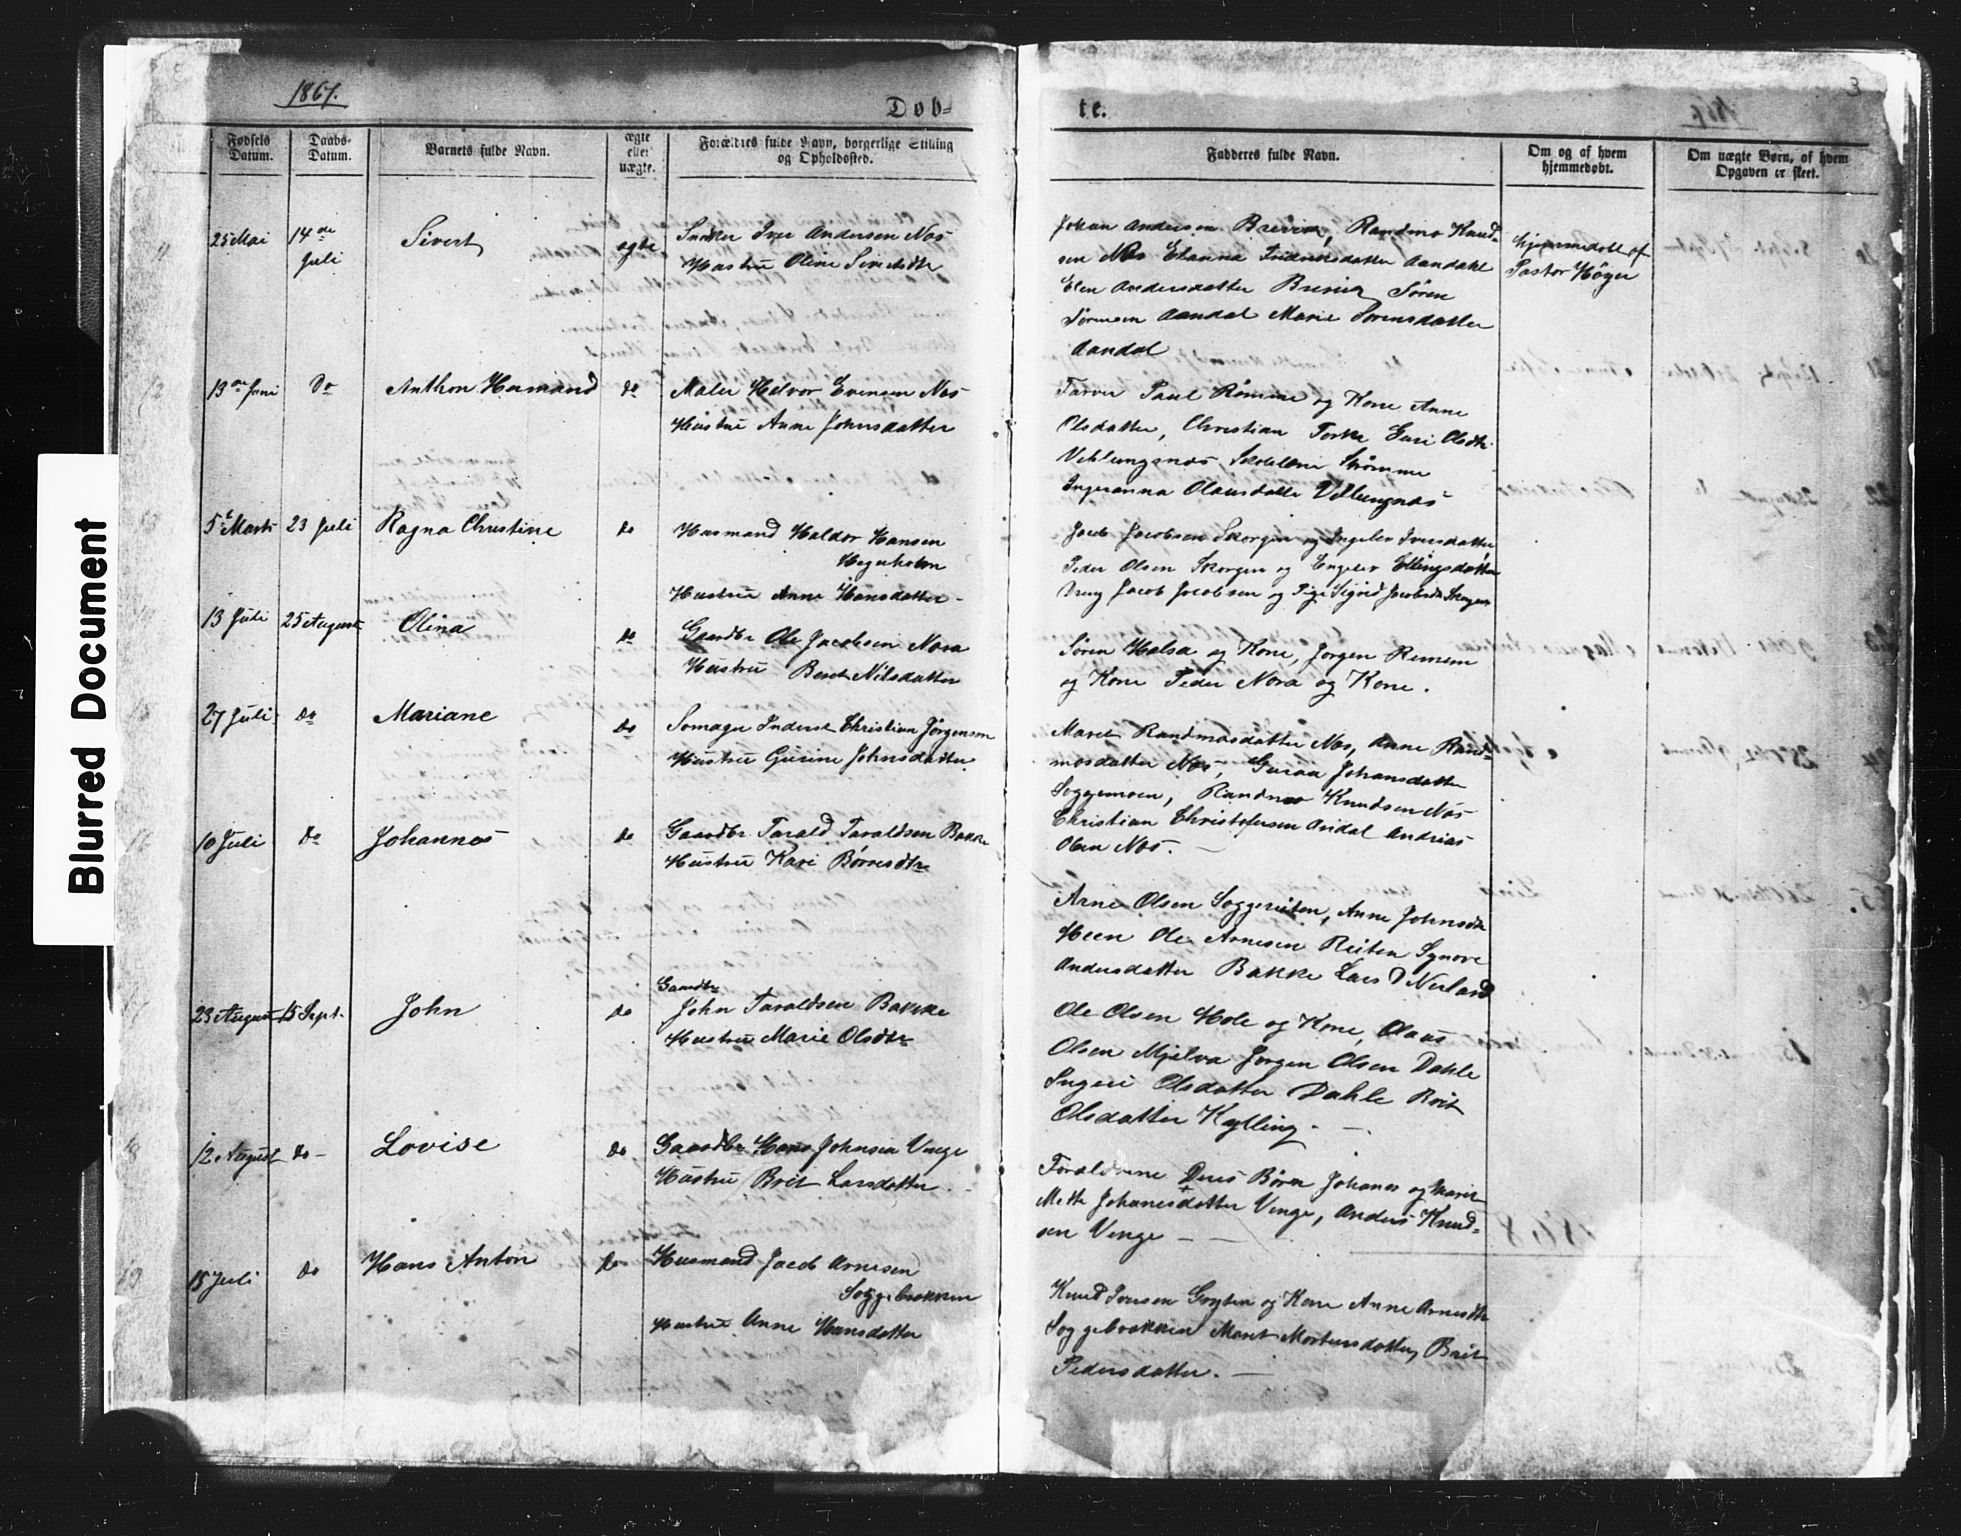 Blurred Document
1867.
Døb-
te.
3
Fødsels Datum.
Daabs-Datum.
Barnets fulde Navn.
ægte eller uægte.
Forældres fulde Navn, borgerlige Stilling og Opholdssted.
Fadderes fulde Navn.
Om og af hvem hjemmedøbt.
Om uægte Børn, af hvem Opgaven er skeet.
25 Mai 14de Juli Sivert ægte
Iver Andersen Næs
Hustru Oline
Johan Andersen Brevik, Randmo Knud-
sen Næs Aandahl
Elen Andersdatter Brevik Søren
Sørensen Aandal Marie Sørensdatter
Aandal
hjemmedøbt af
Pastor Høyer
12 13de Juni Do Anthon Hermand do
Maler Halvor Evensen Næs
Hustru Anne Johnsdatter
Farver Paul Rømme og Kone Anne
Olsdatter, Christian Guri Olsdtr
Veblungsnæs
Olausdatter Veblungnæs
5t Marts 23 Juli Ragna Christine do
Husmand Haldor Hansen
Hegerholm
Hustru Anne Hansdatter
Jacob Jacobsen Skorgen og Ingelev Iversdatter
Peder Olsen Skorgen og Engelev Ellingsdatter
Dreng Jacob Jacobsen og Pige Sigrid Jacobsdtr Skorgen
13 Juli 25 August Olina do
Gaardbr Ole Jacobsen Nora
Hustru Beret Nilsdatter
Søren Halsa og Kone, Jørgen Remem
og Kone Peder Nora og Kone.
27 Juli do Mariane do
Inderst Christian Jørgensen
Hustru Gurine Johnsdatter
Maret Randmosdatter Næs, Anne Rand-
mosdatter Næs, Guroa Johansdatter
Soggemoen, Randmo Knudsen Næs
Christian Christofersen Andal Andrias
Olsen Næs.
10 Juli do Johannes do
Gaardbr Tarald Taraldsen Bakke
Hustru Kari Børresdtr
Arne Olsen Soggereiten, Anne Johnsdtr
Heen Ole Arnesen Reiten Synove
Andersdatter Bakke Lars D Nerland
23 August 15 Sept. John do
Gaardbr
John Taraldsen Bakke
Hustru Marie Olsdtr
Ole Olsen Hole og Kone, Olaus
Olsen Mjelva Jørgen Olsen Dahle
Ingeri Olsdatter Dahle Brit
Olsdatter Kylling.
18 12 August do Lovise do
Gaardbr Hans Johnsen Venge
Hustru Brit Larsdatter
Forældrene Deres Børn Johanes og Marit
Mette Johanesdatter Venge, Anders Knud-
sen Venge
19 15 Juli do Hans Anton do
Husmand Jacob Arnesen
Soggebrekken
Hustru Anne Hansdatter
Knud Iversen og Kone Anne Arnesdtr
Soggebrekken Maret Mortensdatter, Brit
Pedersdatter.